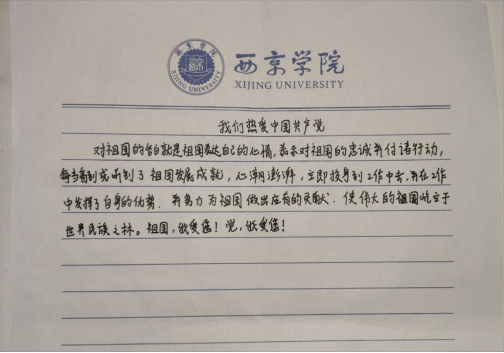 西京学院
XIJING UNIVERSITY
西京学院
XIJING UNIVERSITY
我们热爱中国共产党
对祖国的告白就是祖国表达自己的心情，表示对祖国的忠诚并付诸行动，
每当看到或听到了祖国发展成就，心潮澎湃，立即投身到工作中去，并在工作
中发挥了自身的优势，并努力为祖国做出应有的贡献，使伟大的祖国屹立于
世界民族之林。祖国，我爱您！党，我爱您！